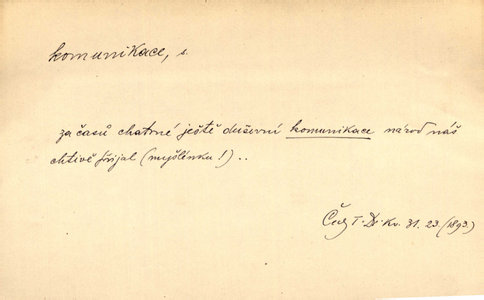 komunikace, s.
za časů chatrné ještě duševní komunikace národ náš
chtivě přijal (myšlénku!)..
Čech T. Di. Kv. 31. 23. (1893)